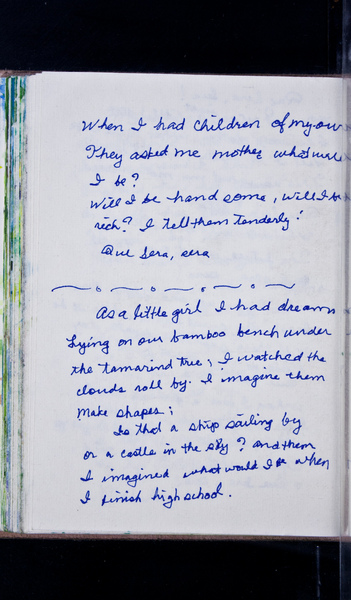 When I had children of my ow
They asked me mother what
I be?
Will I be hand some, will I be
rich? I tell them tenderly!
Que sera, sera
As a little girl I had dreams
Lying on our bamboo bench under
the tamarind tree; I watched the
clouds roll by. I imagine them
make shapes;
Is that a ship sailing by
or a castle in the sky? and then
I imagined what would I be when
I finish high school.